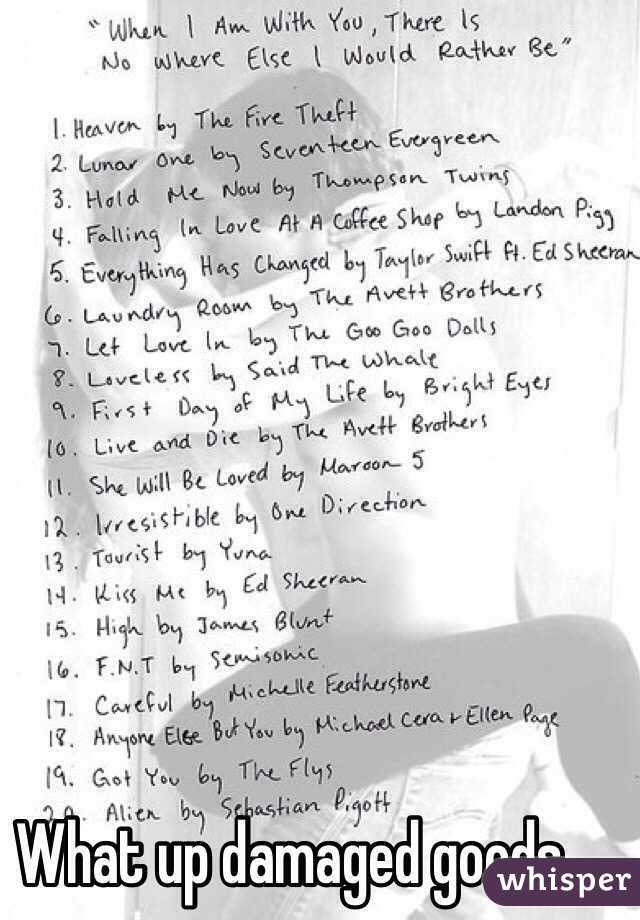 "When I Am With You, There Is
No Where Else I Would Rather Be"
1. Heaven by The Fire Theft
2. Lunar One by Seventeen Evergreen
3. Hold Me Now by Thompson Twins
4. Falling In Love At A Coffee Shop by Landon Pigg
5. Everything Has Changed by Taylor Swift ft. Ed Sheeran
6. Laundry Room by The Avett Brothers
7. Let Love In by The Goo Goo Dolls
8. Loveless by Said The Whale
9. First Day of My Life by Bright Eyes
10. Live and Die by The Avett Brothers
11. She Will Be Loved by Maroon 5
12. Irresistible by One Direction
13. Tourist by Yuna
14. Kiss Me by Ed Sheeran
15. High by James Blunt
16. F.N.T by Semisonic
17. Careful by Michelle Featherstone
18. Anyone Else But You by Michael Cera + Ellen Page
19. Got You by The Flys
20. Alien by Sebastian Pigott
What up damaged goods
whisper